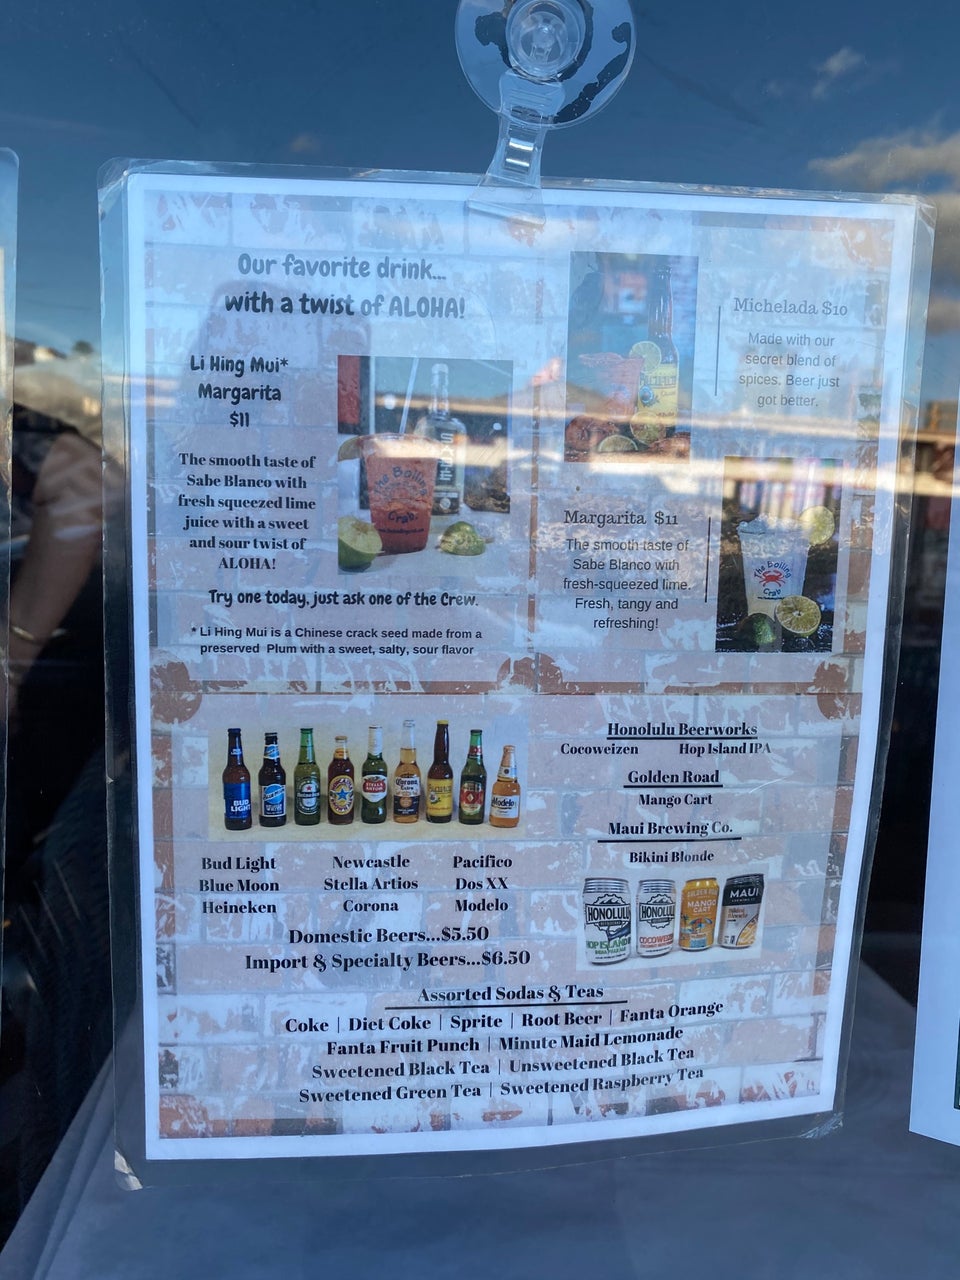 Our favorite drink...
with a twist of ALOHA!
Li Hing Mui*
Margarita
$11
The smooth taste of
Sabe Blanco with
fresh squeezed lime
juice with a sweet
and sour twist of
ALOHA!
The Boiling
Crab
Try one today, just ask one of the Crew.
* Li Hing Mui is a Chinese crack seed made from a
preserved Plum with a sweet, salty, sour flavor
Michelada $10
Made with our
secret blend of
spices. Beer just
got better.
Margarita $11
The smooth taste of
Sabe Blanco with
fresh-squeezed lime.
Fresh, tangy and
refreshing!
The Boiling
Crab
BUD
LIGHT
STELLA
ARTOIS
Corona
Extra
Modelo
Bud Light
Blue Moon
Heineken
Newcastle
Stella Artios
Corona
Pacifico
Dos XX
Modelo
Domestic Beers...$5.50
Import & Specialty Beers...$6.50
Honolulu Beerworks
Cocoweizen Hop Island IPA
Golden Road
Mango Cart
Maui Brewing Co.
Bikini Blonde
HONOLULU
HOP ISLAND
HONOLULU
COCOWEIZEN
MANGO
CART
MAUI
Assorted Sodas & Teas
Coke | Diet Coke | Sprite | Root Beer | Fanta Orange
Fanta Fruit Punch | Minute Maid Lemonade
Sweetened Black Tea | Unsweetened Black Tea
Sweetened Green Tea | Sweetened Raspberry Tea